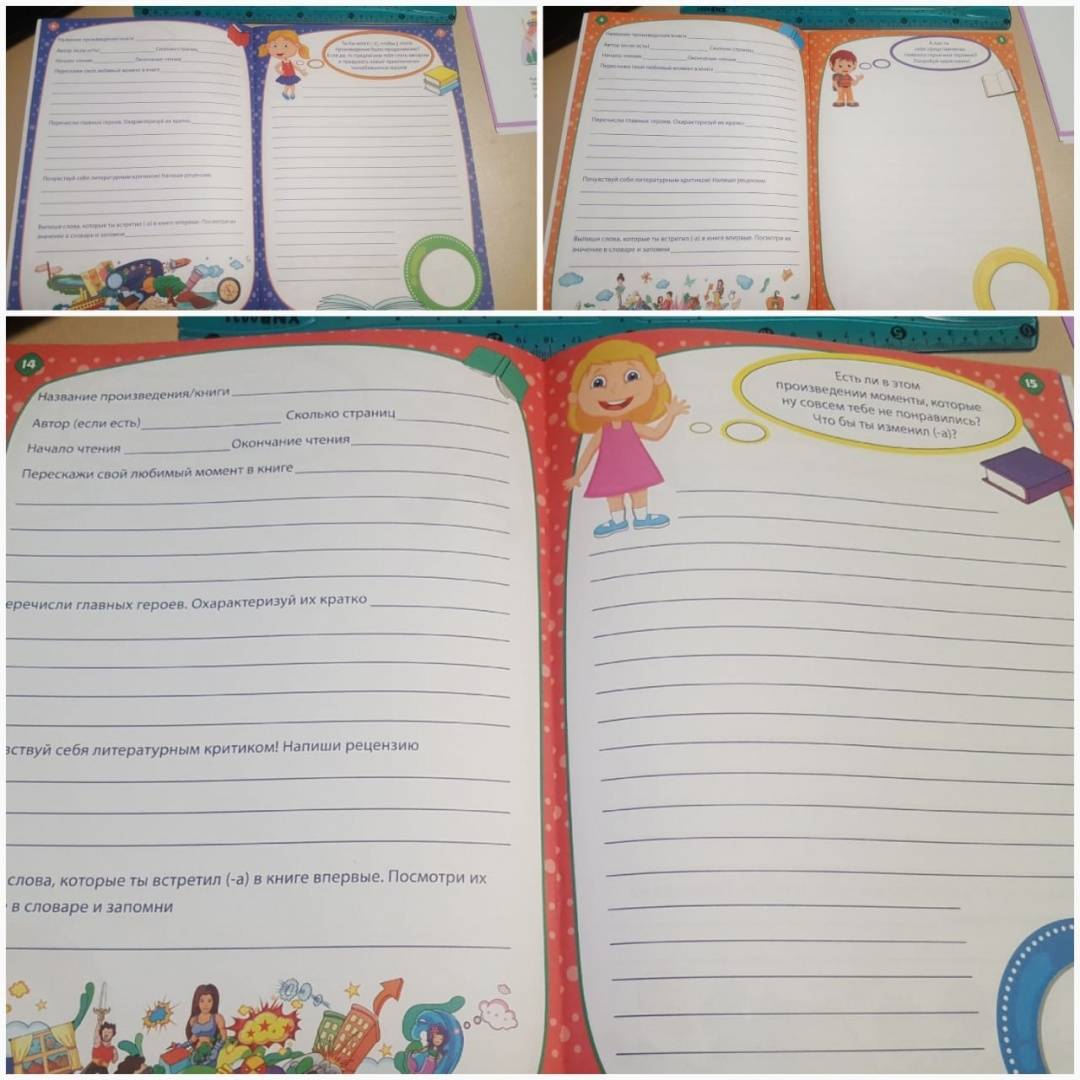 Название произведения/книги
Автор (если есть) Сколько страниц
Начало чтения Окончание чтения
Перескажи свой любимый момент в книге
Перечисли главных героев. Охарактеризуй их кратко
Почувствуй себя литературным критиком! Напиши рецензию
Выпиши слова, которые ты встретил (-а) в книге впервые. Посмотри их
значение в словаре и запомни
Название произведения/книги
Автор (если есть) Сколько страниц
Начало чтения Окончание чтения
Перескажи свой любимый момент в книге
Перечисли главных героев. Охарактеризуй их кратко
Почувствуй себя литературным критиком! Напиши рецензию
Выпиши слова, которые ты встретил (-а) в книге впервые. Посмотри их
значение в словаре и запомни
14
Название произведения/книги
Автор (если есть) Сколько страниц
Начало чтения Окончание чтения
Перескажи свой любимый момент в книге
еречисли главных героев. Охарактеризуй их кратко
вствуй себя литературным критиком! Напиши рецензию
слова, которые ты встретил (-а) в книге впервые. Посмотри их
в словаре и запомни
15
Есть ли в этом
произведении моменты, которые
ну совсем тебе не понравились?
Что бы ты изменил (-а)?